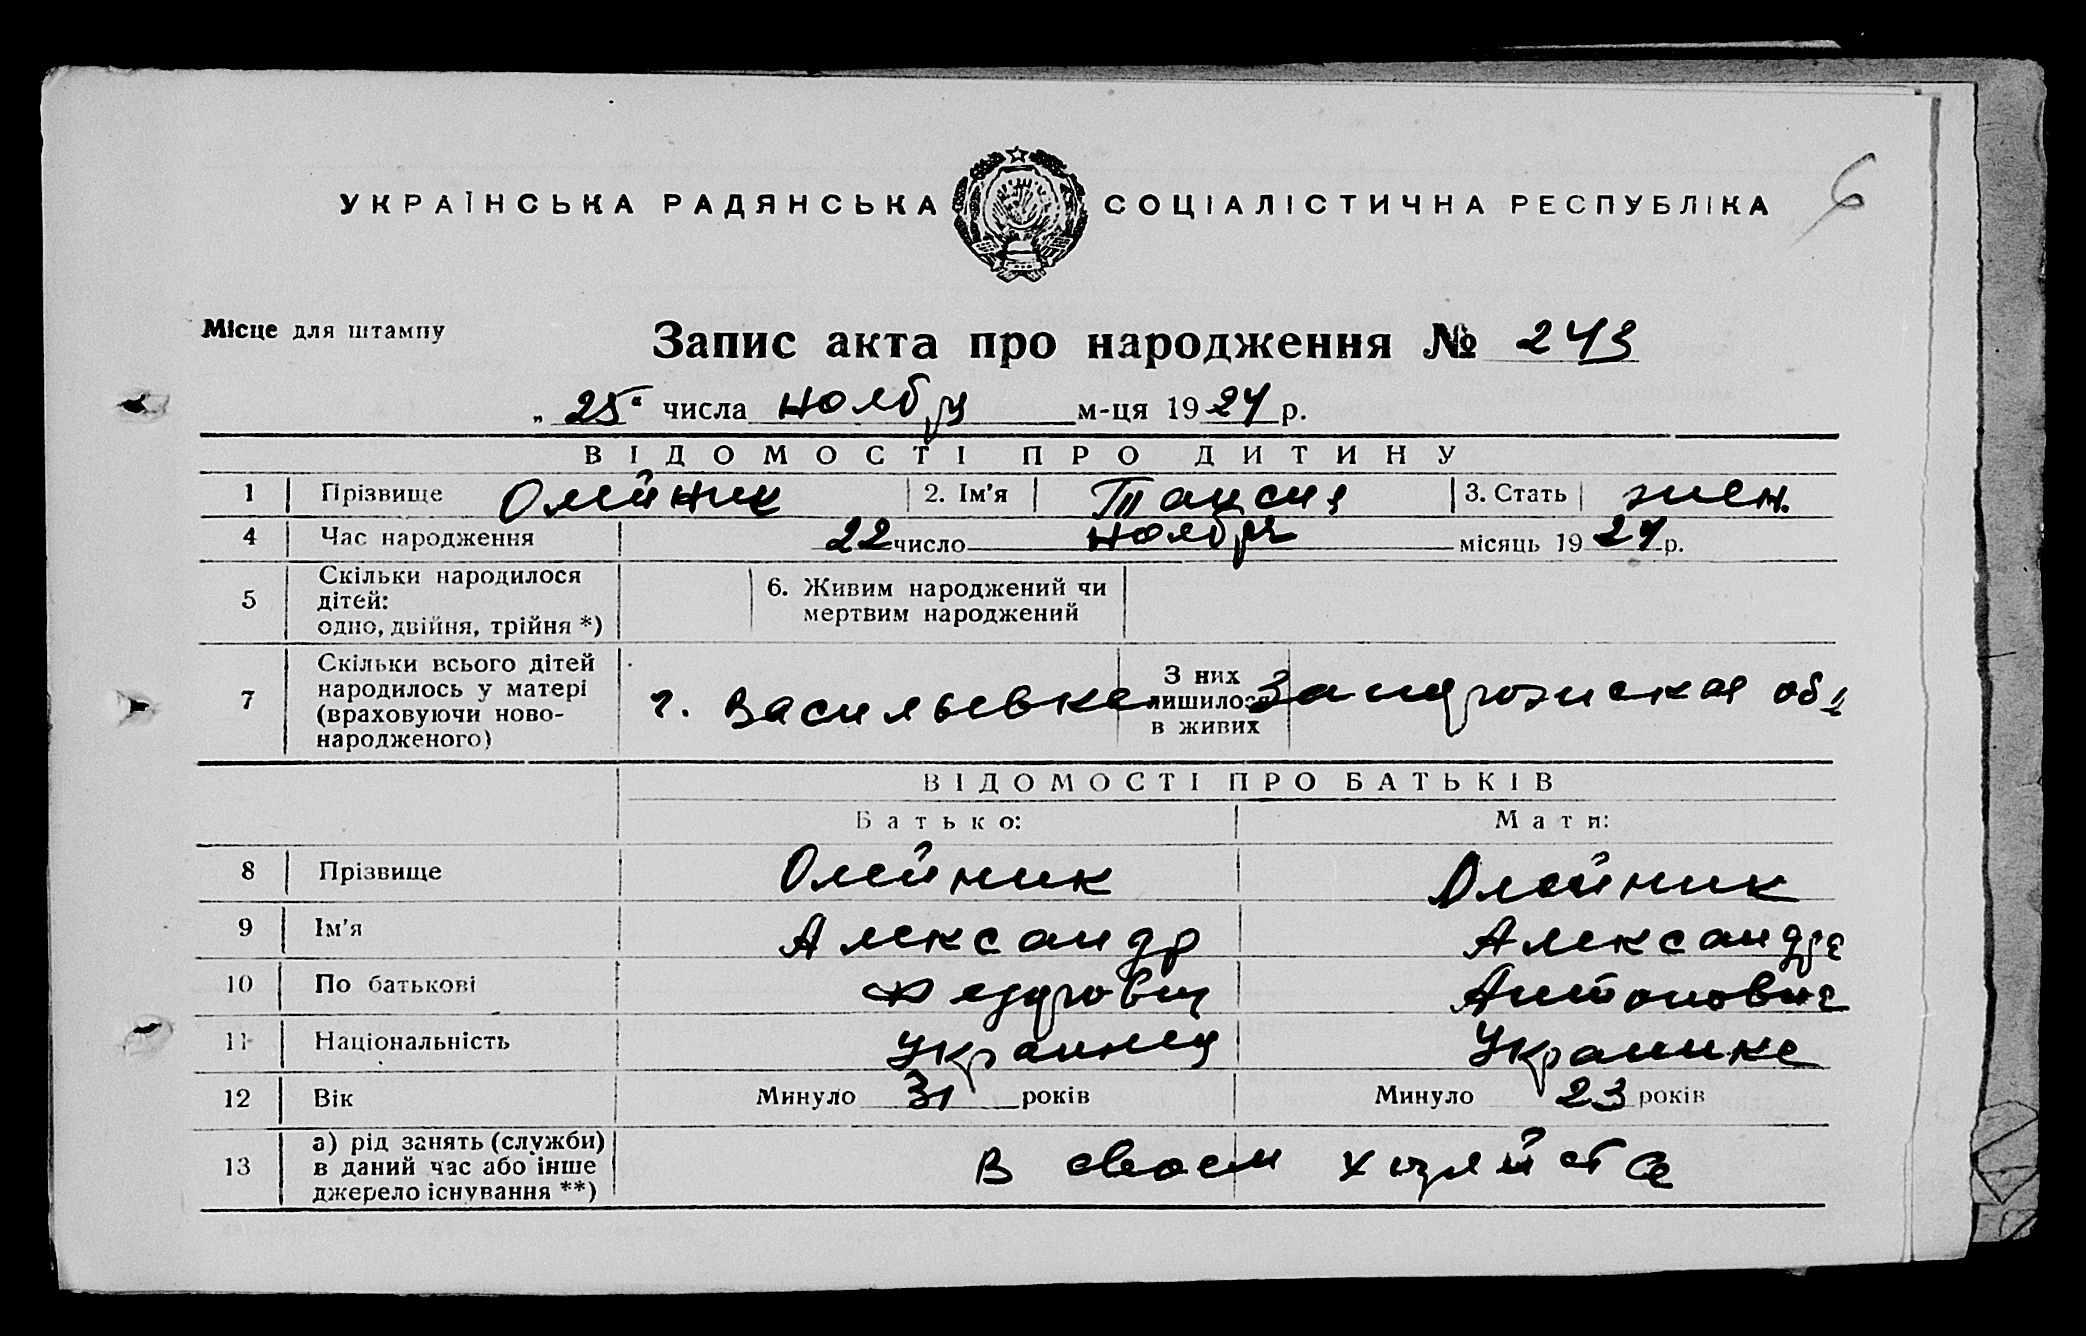 6
УКРАЇНСЬКА РАДЯНСЬКА СОЦІАЛІСТИЧНА РЕСПУБЛІКА
Місце для штампу
Запис акта про народження № 243
„25“ числа ноября м-ця 1924 р.
ВІДОМОСТІ ПРО ДИТИНУ
1 Прізвище Олейник 2. Ім'я Таисия 3. Стать жен.
4 Час народження 22 число ноября місяць 1924 р.
5 Скільки народилося дітей: одно, двійня, трійня *) 6. Живим народжений чи мертвим народжений
7 Скільки всього дітей народилось у матері (враховуючи новонародженого) г. Васильевка З них лишилось в живих Запорожская обл
ВІДОМОСТІ ПРО БАТЬКІВ
Батько: Мати:
8 Прізвище Олейник Олейник
9 Ім'я Александр Александра
10 По батькові Федорович Антоновна
11 Національність Украинец Украинка
12 Вік Минуло 31 років Минуло 23 років
13 а) рід занять (служби) в даний час або інше джерело існування **) В своем хозяйстве